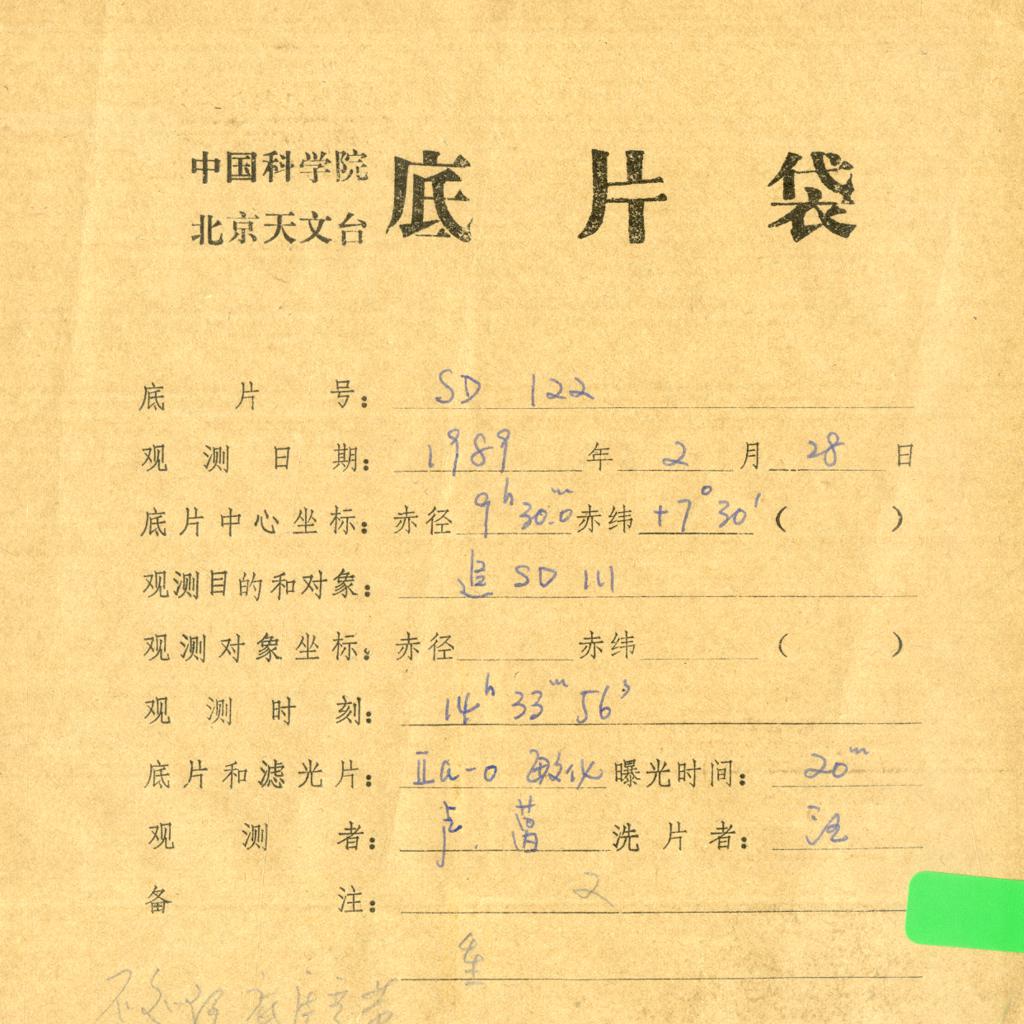 中国科学院
北京天文台
底片袋
底片号: SD 122
观测日期: 1989年2月28日
底片中心坐标: 赤径 9h30.0m 赤纬 +7°30′ ( )
观测目的和对象: 追 SD 111
观测对象坐标: 赤径 赤纬 ( )
观测时刻: 14h 33m 56s
底片和滤光片: IIa-O 敏化 曝光时间: 20m
观测者: 洗片者: 汪
备注: